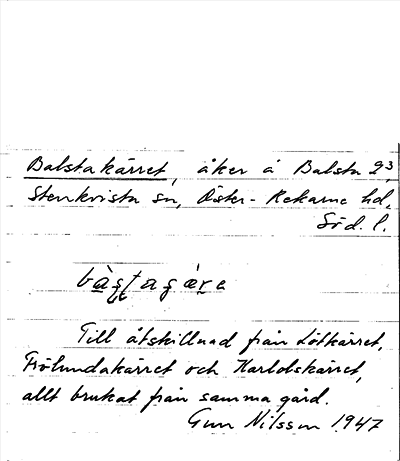 Balstakärret, åker å Balsta 2³,
Stenkvista sn, Öster-Rekarne hd,
Söd. l.
Till åtskillnad från Lötkärret,
Frölundakärret och Karlobskärret,
allt brukat från samma gård.
Gun Nilsson 1947